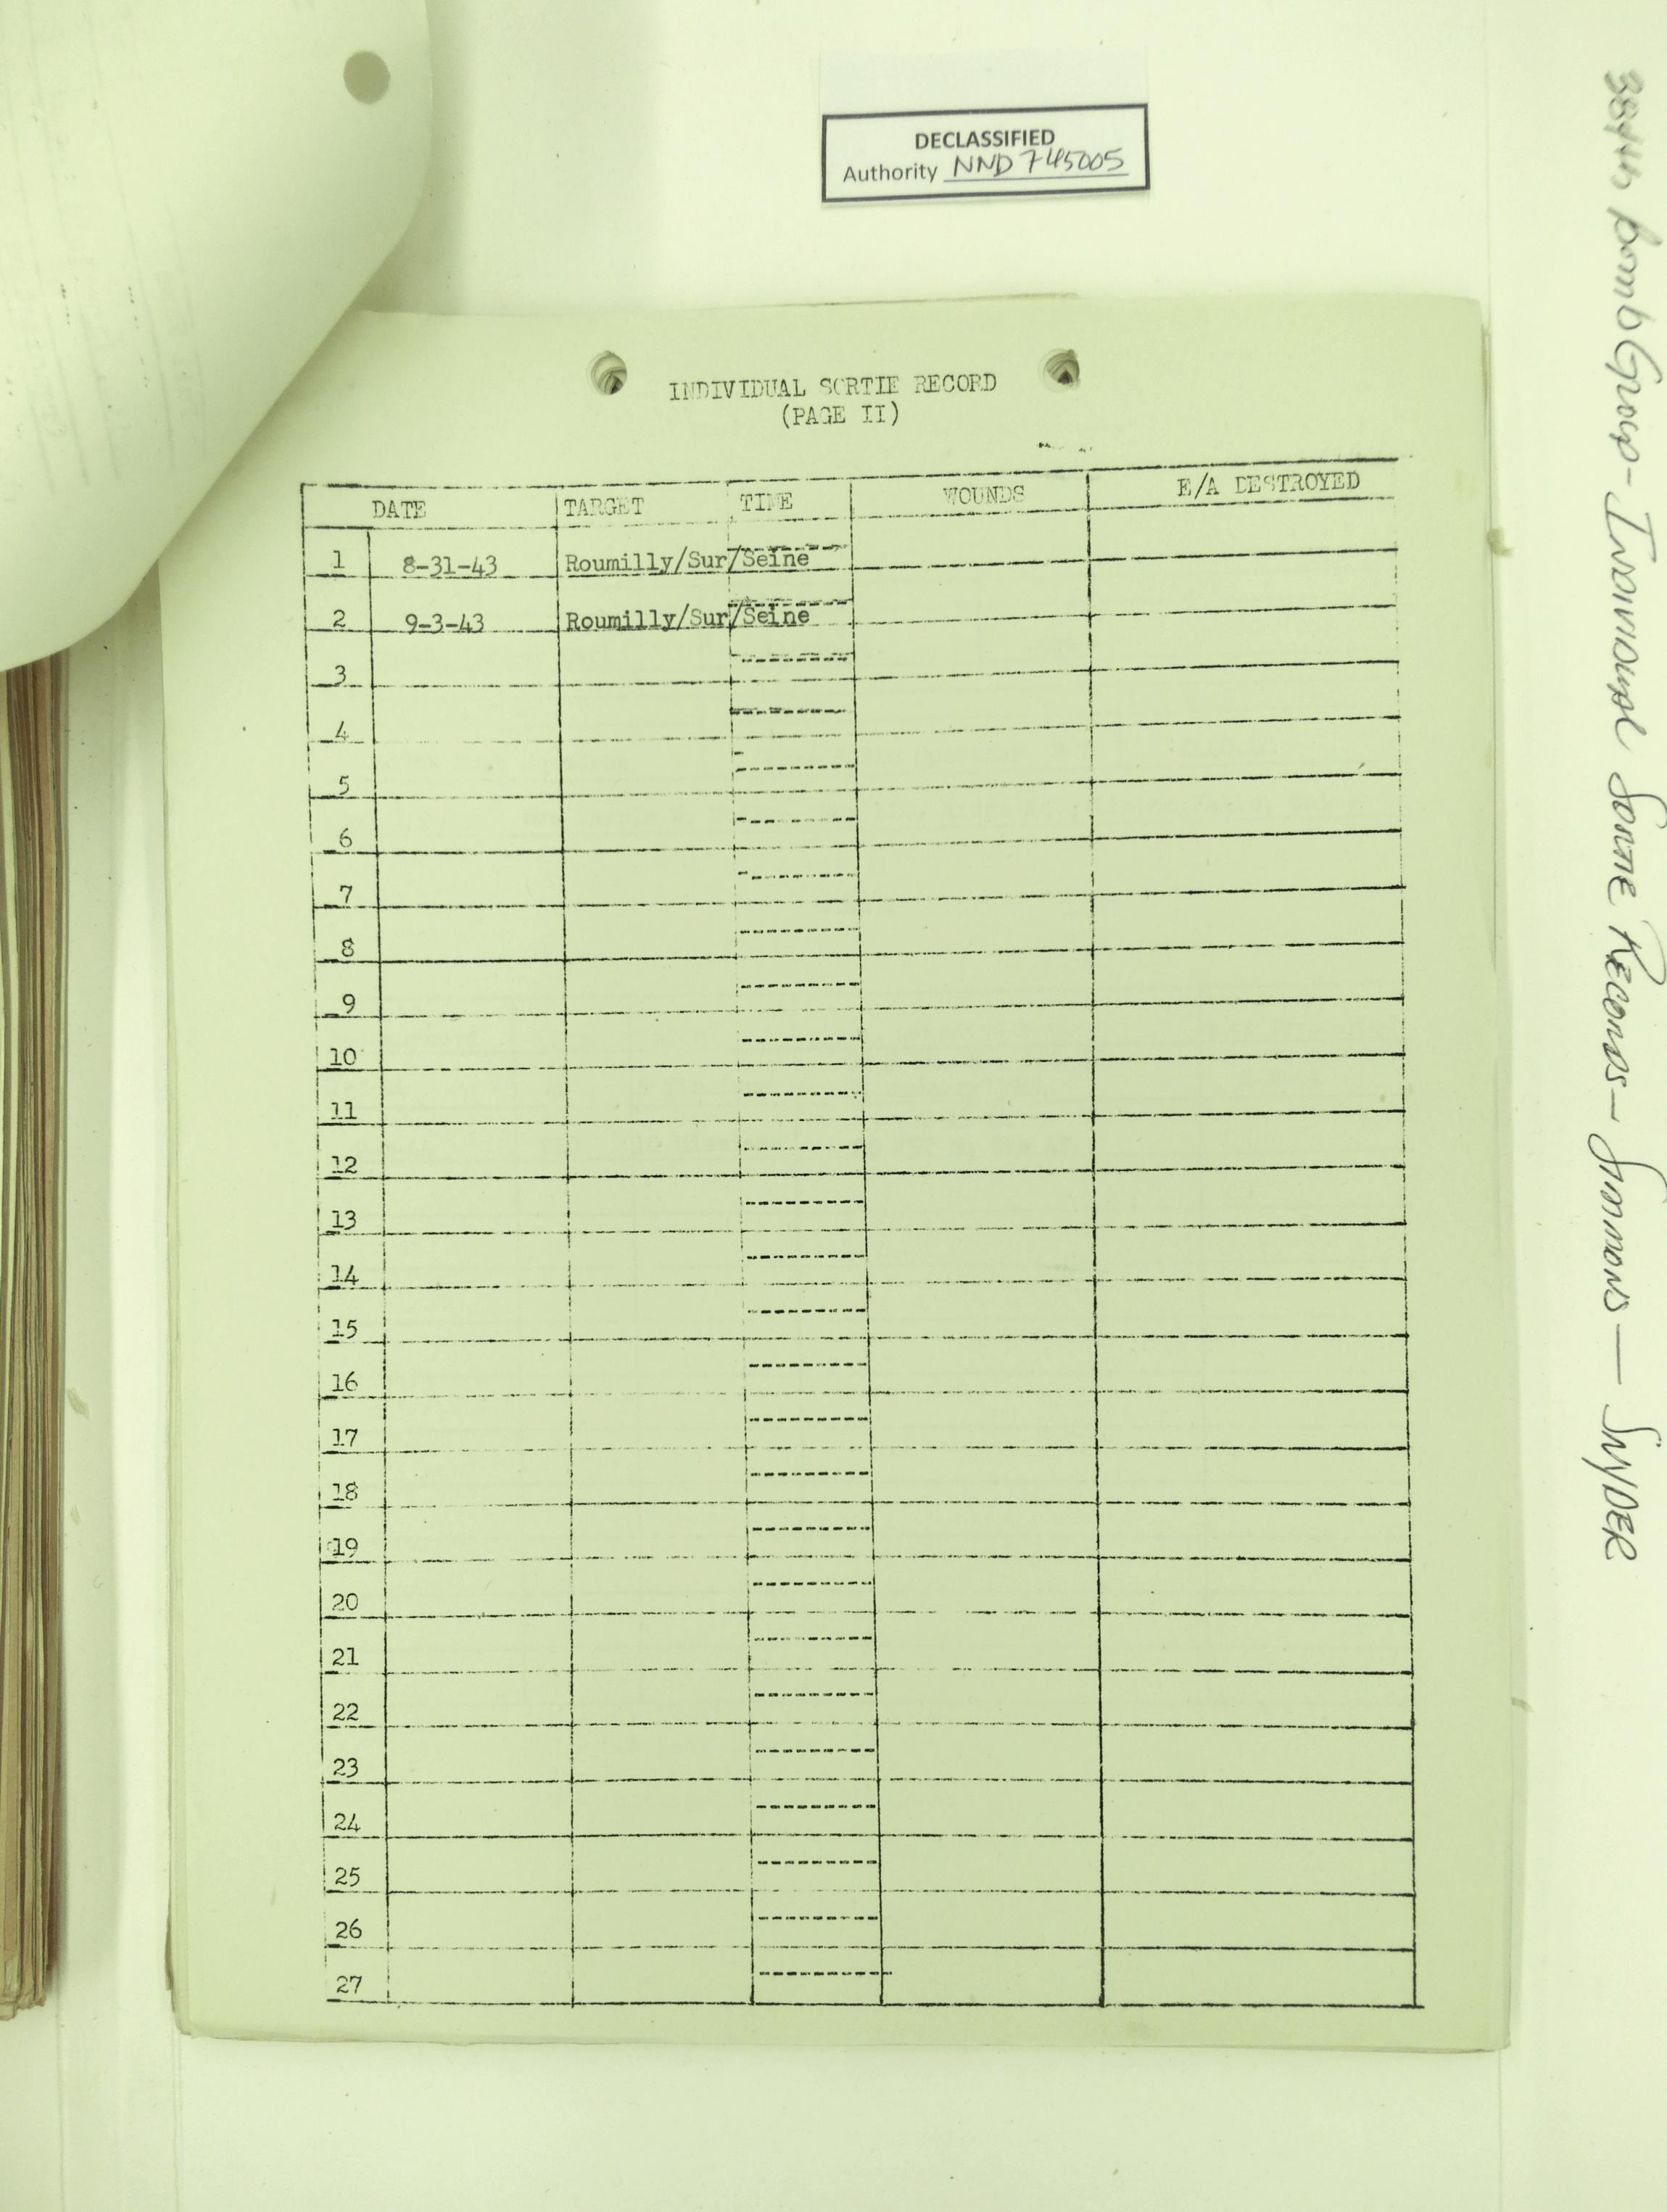 DECLASSIFIED
Authority NND 745005
INDIVIDUAL SORTIE RECORD
(PAGE II)
DATE TARGET TIME WOUNDS E/A DESTROYED
1 8-31-43 Roumilly/Sur/Seine
2 9-3-43 Roumilly/Sur/Seine
3
4
5
6
7
8
9
10
11
12
13
14
15
16
17
18
19
20
21
22
23
24
25
26
27
384th Bomb Group - Individual Sortie Records - Simmons — Snyder